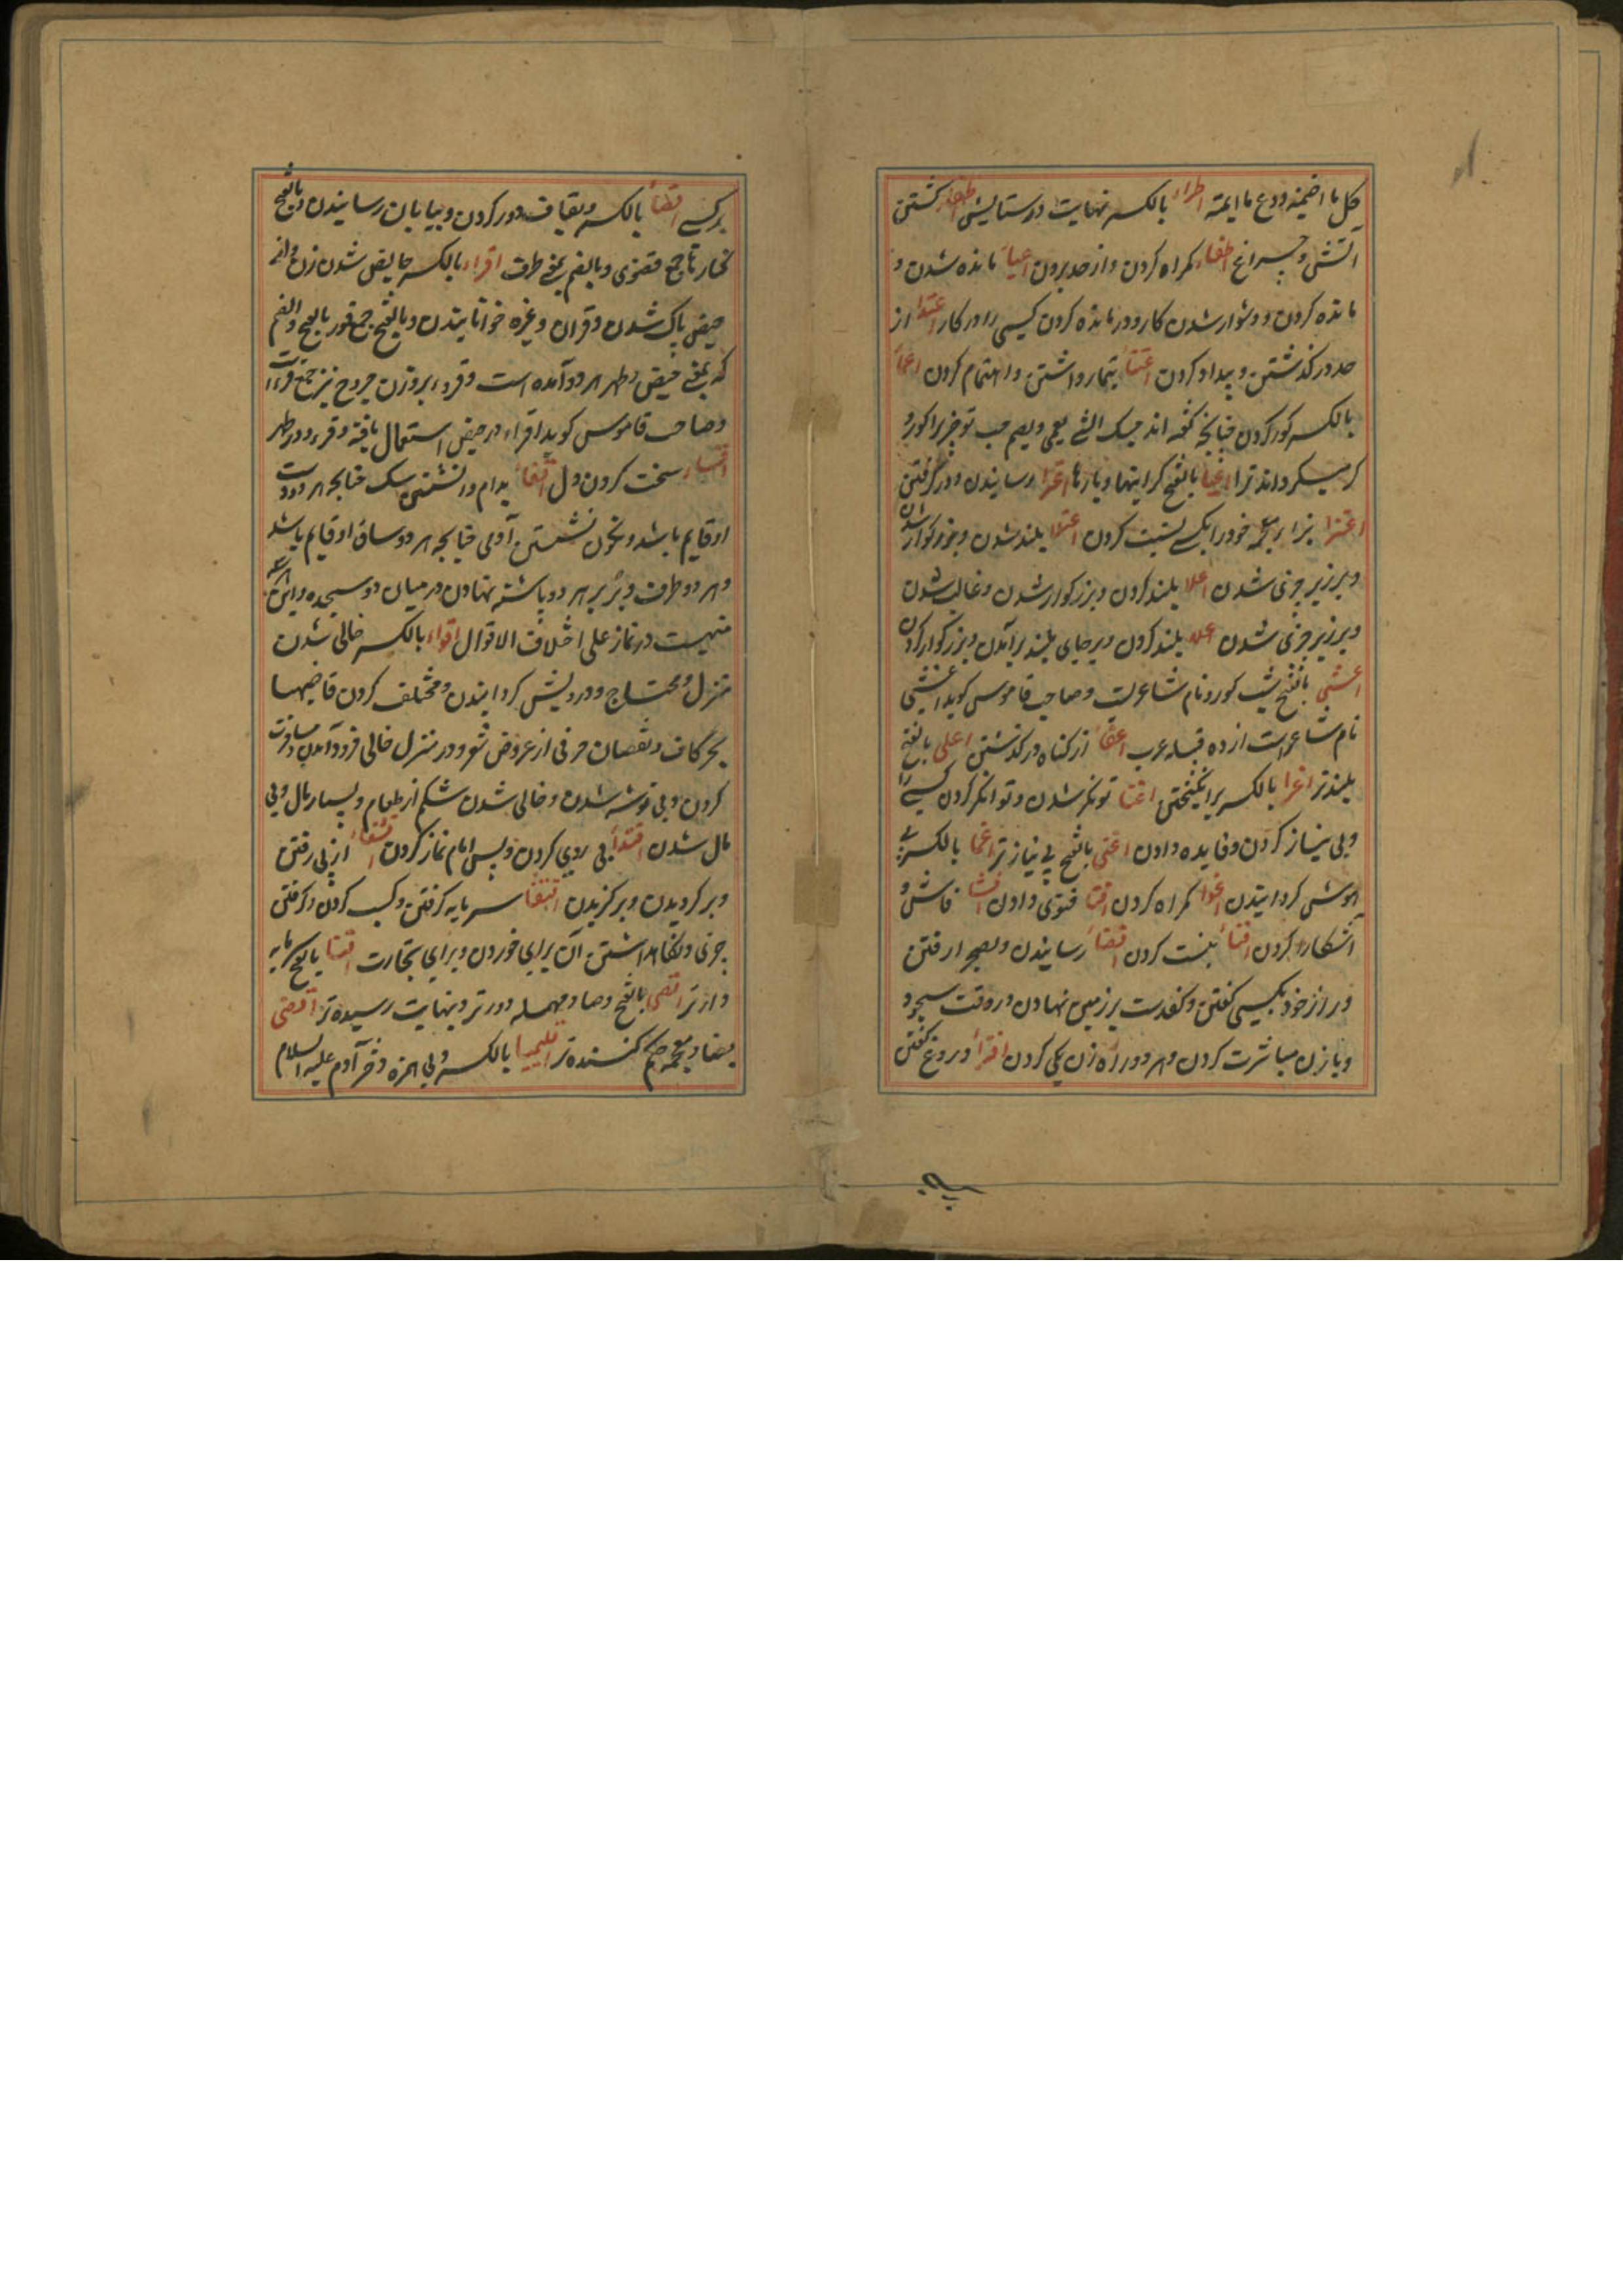 کل ما اضمیته ودع ما ایمته اطراء بالکسر نهایت در ستایش اطفاء کشتن
آتش و چراغ اطغاء کمراه کردن و از حد بردن اعیاء مانده شدن و
مانده کردن و دشوار شدن کار و درمانده کردن کسی را در کار اعتدا از
حد در کذشتن و بیداد کردن اعتناء تیمار داشتن و اهتمام کردن اعماء
بالکسر کور کردن چنانچه کفته اند حبک الشی یعمی و یصم حب تو چیز را کور و
کر میکرداند ترا اعبا بالفتح کرانیها و بارها اعزا رسانیدن و در کرفتن
اعتزا بزاء معجمه خود را بکسی نسبت کردن اعتلا بلند شدن و بزرکوار شدن
و بر زبر چیزی شدن اعلا بلند کردن و بزرکوار شدن و غالب شدن
و بر زبر چیزی شدن اعلا بلند کردن و بر جای بلند برآمدن و بزرکوار کردن
اعشی بالفتح شب کور و نام شاعریست و صاحب قاموس کوید اعشی
نام شاعر است از ده قبیله عرب اعفاء از کناه در کذشتن اعلی بالفتح
بلندتر اغرا بالکسر برانکیختن اغنا تونکر شدن و توانکر کردن کسی را
و بی نیاز کردن و فایده دادن اغنی بالفتح بی نیازتر اغما بالکسر بی
هوش کردانیدن اغوا کمراه کردن افتا فتوی دادن افشا فاش و
آشکارا کردن افناء نیست کردن افضاء رسانیدن و بصحرا رفتن
و راز خود بکسی کفتن و کف دست بر زمین نهادن در وقت سجود
و با زن مباشرت کردن و هر دو راه زن یکی کردن افتراء دروغ کفتن
بر کسی اقصاء بالکسر و بقاف دور کردن و بپایان رسانیدن و بالفتح
کنارها جمع قصوی و بالضم بمعنی طرف اقراء بالکسر حایض شدن زن و از
حیض پاک شدن و قران و غیره خوانانیدن و بالفتح جمع قرء بالفتح و الضم
که بمعنی حیض و طهر هر دو آمده است و قروء بر وزن جروح نیز جمع قرء است
و صاحب قاموس کوید اقراء در حیض استعمال یافته و قروء در طهر
اقساء سخت کردن دل اقعاء بدام و نشستن سک چنانچه هر دو دست
او قایم باشد و نیز نشستن آدمی چنانچه هر دو ساق او قایم باشد
و هر دو طرف دبر بر هر دو پاشنه نهادن در میان دو سجده و این
منهیست در نماز علی اختلاف الاقوال اقواء بالکسر خالی شدن
منزل و محتاج و درویش کردانیدن و مختلف کردن قافیها
بحرکات و نقصان حرفی از عروض شعر و در منزل خالی فرود آمدن و مسافرت
کردن و بی توشه شدن و خالی شدن شکم از طعام و بسیار مال و بی
مال شدن اقتداء پی روی کردن و پس امام نماز کردن اقتفاء از پی رفتن
و بر کردیدن و بر کزیدن اقتنا سرمایه کرفتن و کسب کردن و کرفتن
چیزی و نکاهداشتن آن برای خوردن و برای تجارت اقنا بالفتح
دارتر اقصی بالفتح و صاد مهمله دورتر و بنهایت رسیده تر اقضی
بضاد معجمه حکم کننده تر اقلیمیا بالکسر و بی همزه دختر آدم علیه السلام